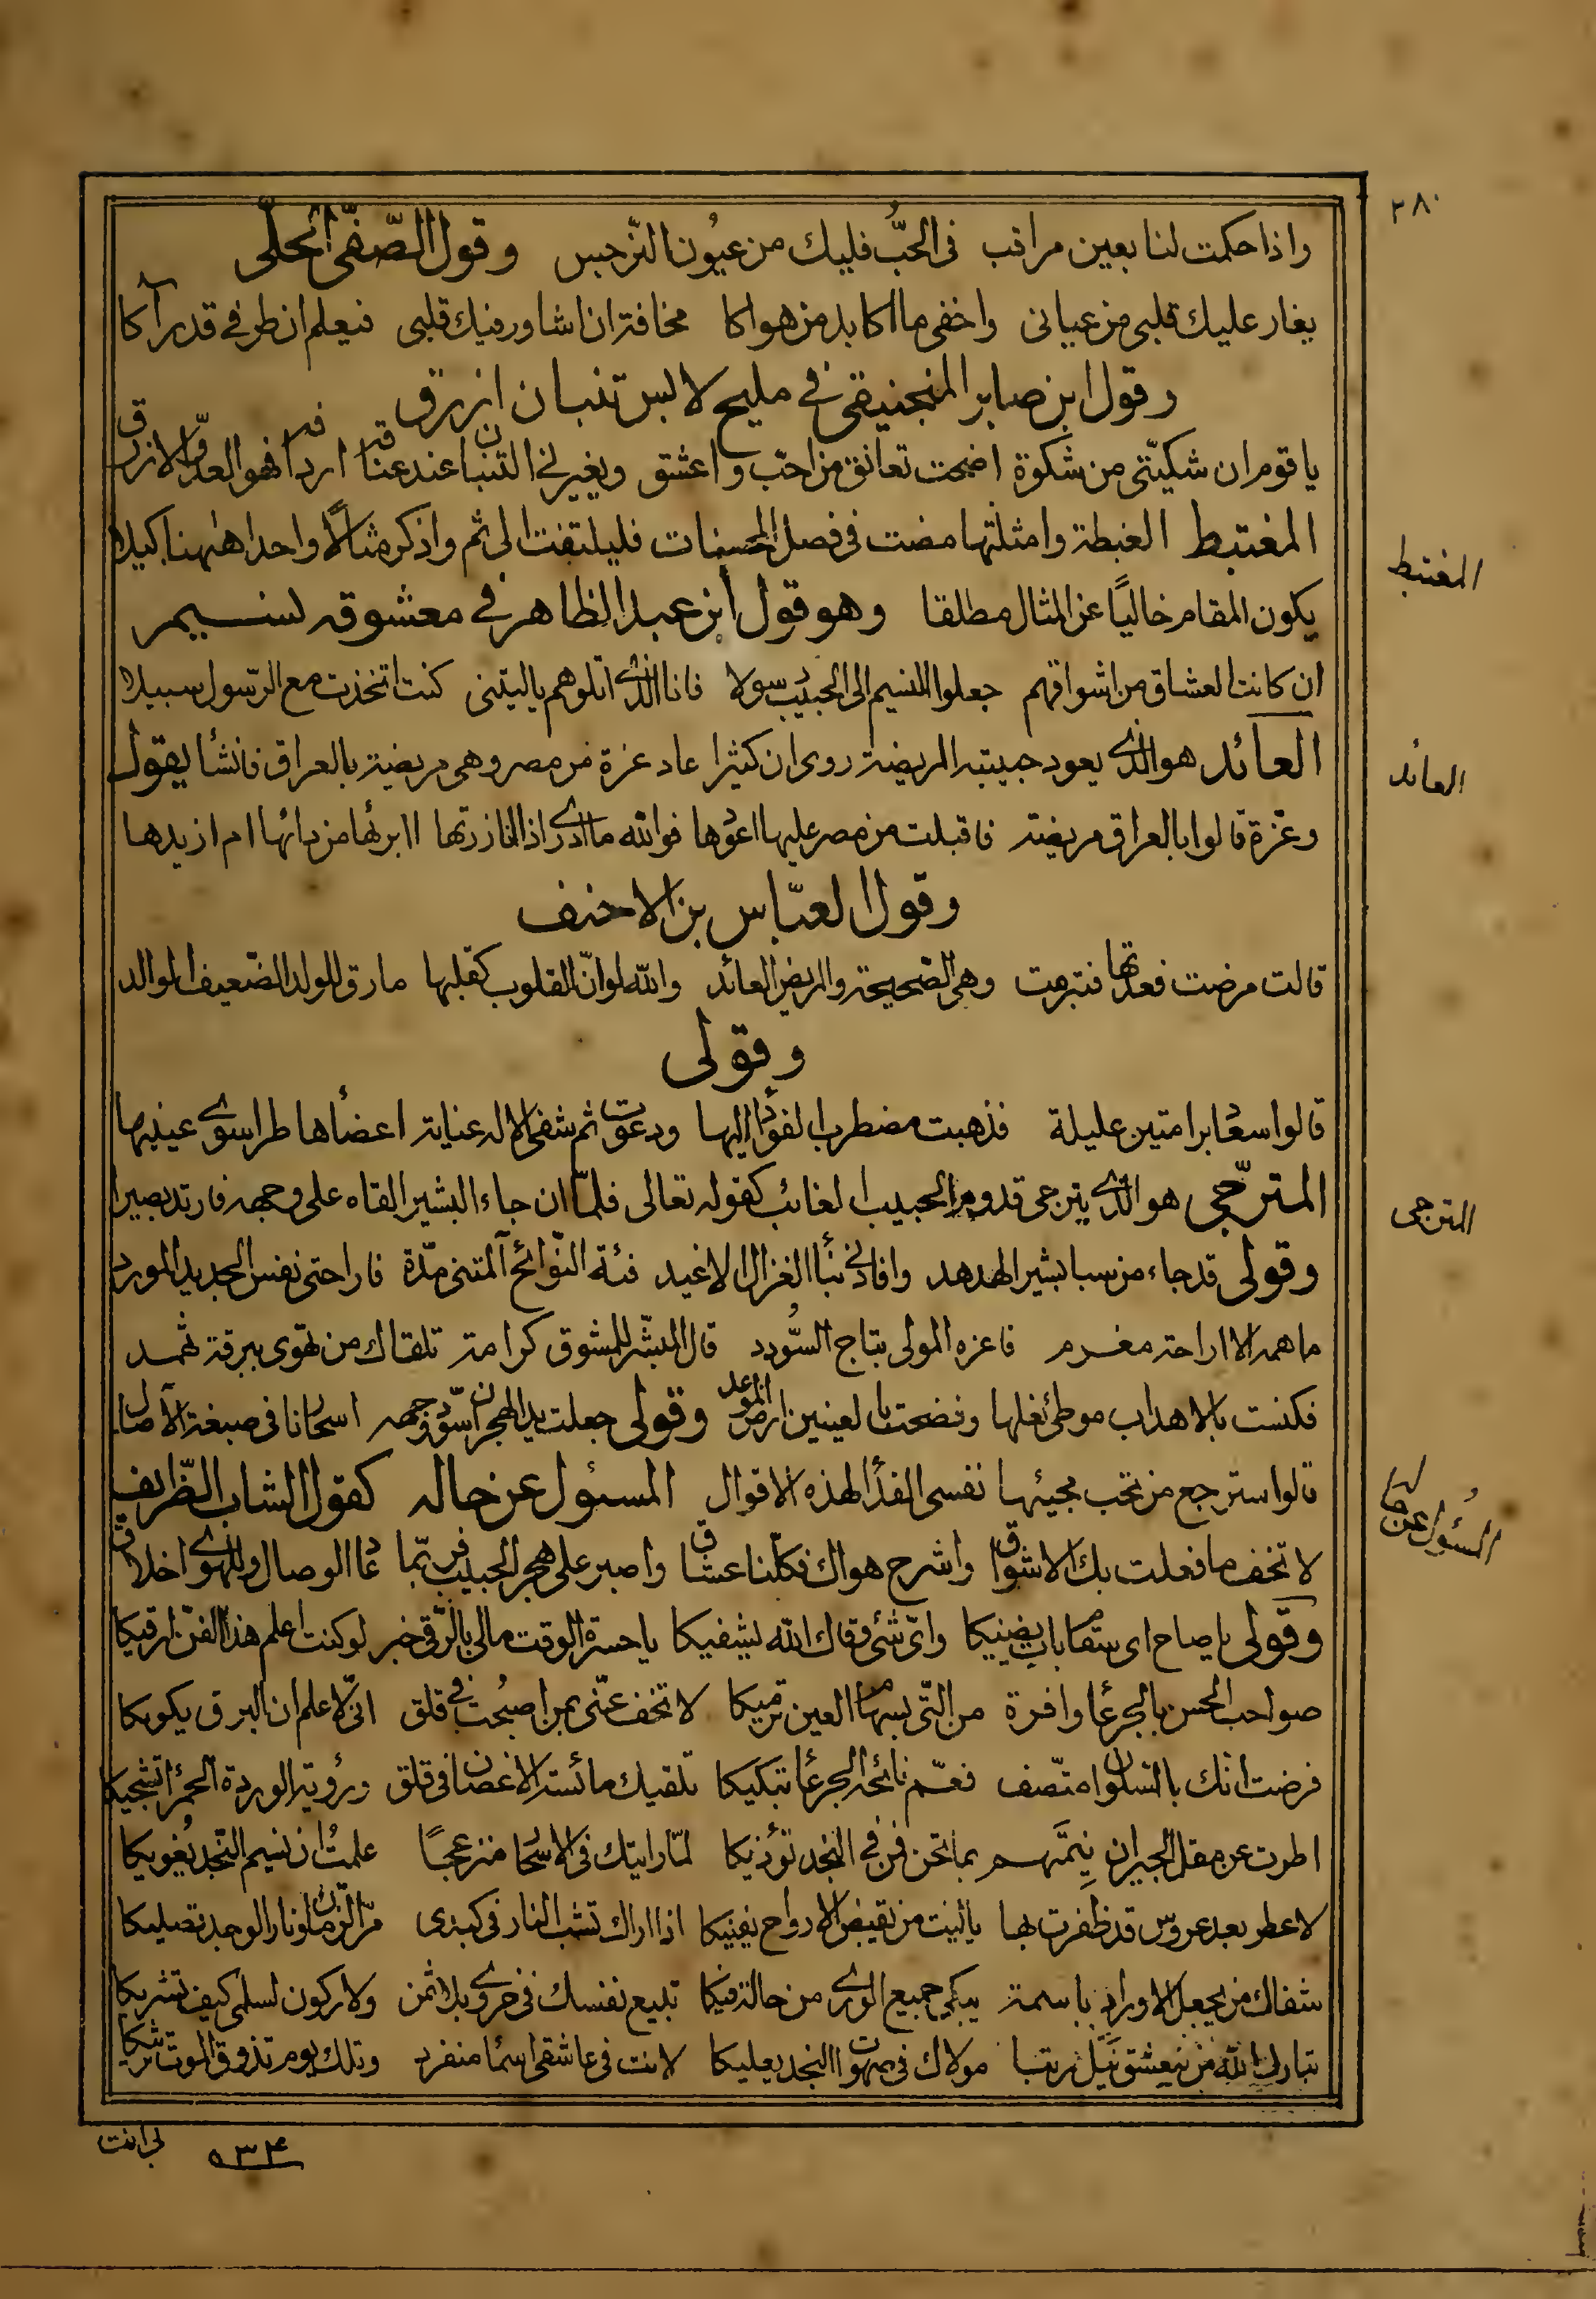 ٢٨٠
واذا حكمت لنا بعين مراقب في الحبُّ فليك من عيُون النّرجس وقول الصّفيّ الحلّي
يغار عليك قلبي من عياني واخفي ما اكابد من هواكا مخافة ان اشاور فيك قلبي فيعلم ان طرفي قد رآكا
وقول ابن صابر المنجنيقي في مليح لابس تنبان ازرق
يا قوم ان شكيّتي من شكوة اضحت تعانق من احبّ و اعشق ويغيرني التنبان عند عناقه اردافه فهو العدوّ الازرق
المغتبط الغبطة وامثلتها مضت في فصل المحسنات فليلتفت الى ثم واذكر مثالًا واحدا هٰهنا كيلا
المغتبط
يكون المقام خاليًا عن المثال مطلقا وهو قول ابن عبد الظاهر في معشوقه نسيم
ان كانت العشاق من اشواقهم جعلوا النسيم الى الحبيب رسولا فانا الذي اتلوهم يا ليتني كنت اتخذت مع الرّسول سبيلا
العائد هو الذي يعود حبيبته المريضة روى ان كثيرا عاد عزة من مصر وهي مريضة بالعراق فانشأ يقول
العائد
وعزة قالوا بالعراق مريضة فاقبلت من مصر عليها اعودها فوالله ما ادري اذا انا زرتها ا ابرئها من دائها ام ازيدها
وقول العبّاس بن الاحنف
قالت مرضت فعدتها فتبرمت وهي الصحيحة والمريض العائد والله لو انّ القلوب كقلبها ما رق للولد الضّعيف الوالد
وقولي
قالوا سعاد برامتين عليلة فذهبت مضطرب الفؤاد اليها ودعوت ثم شفى الاله عناية اعضاءها طرا سوى عينيها
المترجّي هو الذي يترجى قدوم الحبيب الغائب كقوله تعالى فلمّا ان جاء البشير القاه على وجهه فارتد بصيرا
المترجى
وقولي قد جاء من سبا بشير الهدهد وافادني نبأ الغزال الاغيد فئة النّوائح آلمتني مدّة فاراحتي نفس الجديد المورد
ما همه الا اراحة مغرم فاعزه المولى بتاج السُّودد قال المبشّر للمشوق كرامة تلقاك من تهوى ببرقة ثهمد
فكنست بالاهداب موطئ نعلها ونضحت بالعينين ارض الموعد وقولي جعلت يد الهجران اسوّد وجهه اسحارنا في صبغة الآصال
قالوا سترجع من تحب مجيئها نفسي الفدا لهذه الاقوال المسؤل عن حاله كقول الشاب الظّريف
المسُؤل عن حاله
لا تخف ما فعلت بك الاشواق واشرح هواك فكلّنا عشاق واصبر على هجر الحبيب فربّما عاد الوصال وللهوى اخلاق
وقولي يا صاح اي سقام بات يضنيكا واي شئ وقاك الله يشفيكا يا حسرة الوقت مالي بالرّقى خبر لو كنت اعلم هذا الفنّ ارقيكا
صواحب الحسن بالجرعاء وافرة من الّتي بسهام العين ترميكا لا تخف عنّي بمن اصبحت في قلق انّي لاعلم ان البرق يكويكا
فرضت انك بالسلوان متّصف فعمّ نائحة الجرعاء تبكيكا تلقيك مائسة الاغصان في قلق ورؤية الوردة الحمراء تشجيكا
اطرت عن مقل الجيران نِمتَهم بما تحن فمن في النجد تؤذيكا لمّا رايتك في الاسحار منزعجًا علمتُ ان نسيم النّجد يُغويكا
لا عطر بعد عروس قد ظفرت بها يا ليت من نقيض الارواح يفنيكا اذا اراك تشب النار في كبدى مرّ الزمان ونار الوجد تصليكا
شفاك من يجعل الاوراد باسمة يبكي جميع الورى من حالة فيكا تبيع نفسك في حزوى بلا ثمن ولا ركون لسلمى كيف تشريكا
تبارك الله من يعشق يَنَل رتبا مولاك في صهوات النجد يعليكا لانت في عاشقي اسماء منفرد وتلك يوم تذوق الموت ترثيكا
بل انت
٥٣٤